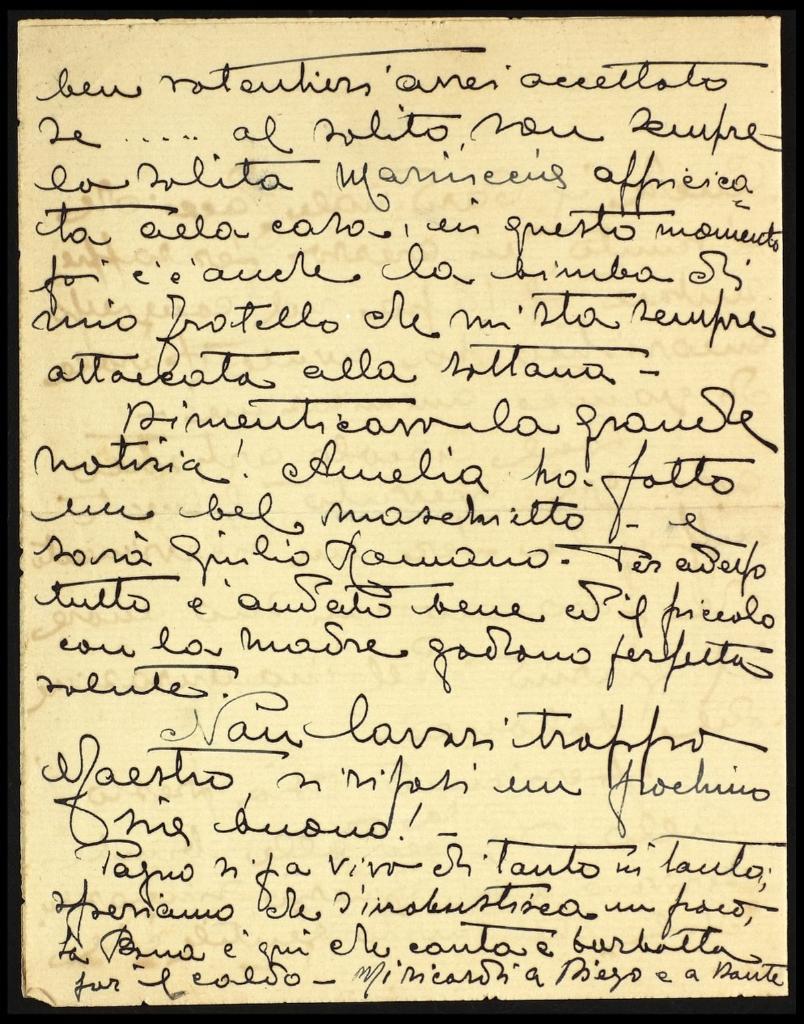 ben volentieri avrei accettato
se ..... al solito, non sempre
la solita affricica=
ta alla casa, in questo momento
poi c'è anche la bimba di
mio fratello che mi sta sempre
attaccata alla sottana -
Dimenticavo la grande
notizia! Amelia ha fatto
un bel maschietto - e
sarà Giulio Romano. Per adesso
tutto è andato bene ed il piccolo
con la madre godono perfetta
salute.
Non lavori troppo
Maestro, si riposi un pochino
sia buono! -
Pagno si fa vivo di tanto in tanto;
speriamo che s'irrobustisca un poco,
la è qui che canta e borbotta
per il caldo - Mi ricordi a Diego e a Dante